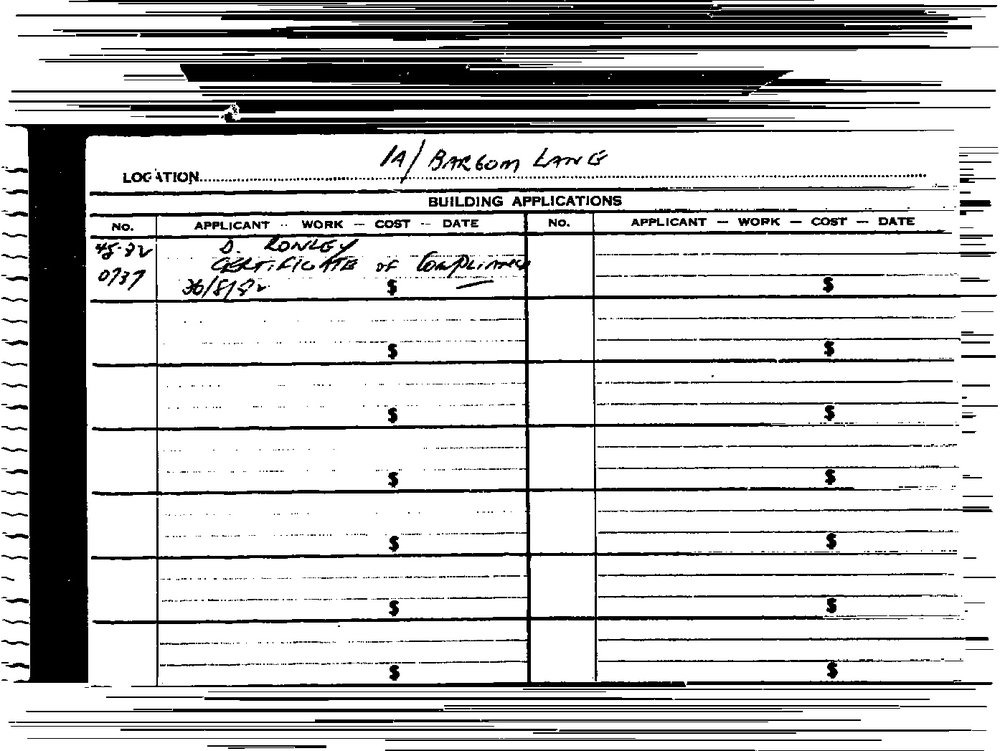 LOCATION 1A/ BARCOM LANE
BUILDING APPLICATIONS
NO. APPLICANT - WORK - COST - DATE NO. APPLICANT - WORK - COST - DATE
45-82 D. RONLEY
0737 CERTIFICATE OF COMPLIANCE
$ $
$ $
$ $
$ $
$ $
$ $
$ $